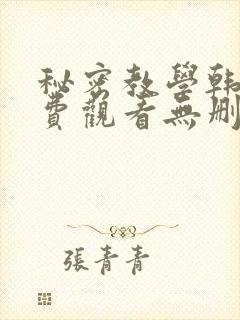 秘密教學韩
费觀看無刪
張青青